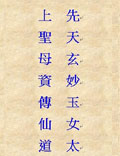 先天玄妙玉女太
上聖母資傳仙道